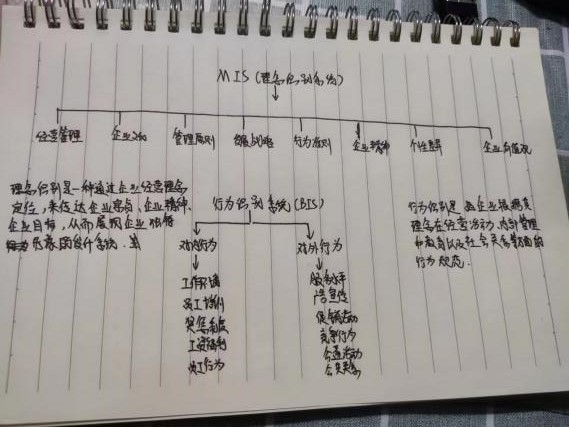 MIS (理念识别系统)
经营管理 企业文化 管理原则 发展战略 行为准则 企业精神 企业价值观
理念识别是一种通过企业经营理念
定位,来传达企业宗旨、企业精神、
企业目标,从而展现企业独特
的设计系统.
行为识别系统 (BIS)
对内行为 对外行为
工作环境
员工培训
奖惩制度
工资福利
员工行为
服务水平
广告宣传
促销活动
竞争行为
公益活动
公共关系
行为识别是
理念在经营活动、内部管理
和教育以及社会关系等方面的
行为规范.